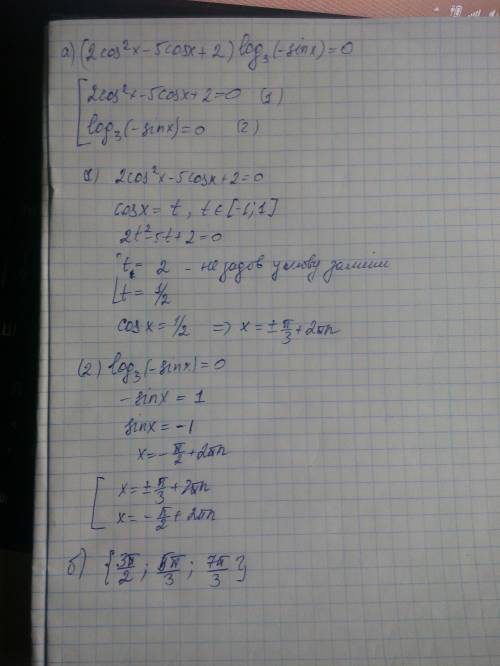 а) (2cos²x-5cosx+2) log₃(-sinx)=0
[2cos²x-5cosx+2=0 (1)
log₃(-sinx)=0 (2)
1) 2cos²x-5cosx+2=0
cosx=t, t∈[-1;1]
2t²-5t+2=0
[t= 2 - не задов умову заміни
t= 1/2
cosx=1/2 => x=±π/3+2πn
(2) log₃(-sinx)=0
-sinx = 1
sinx=-1
x=-π/2+2πn
[x=±π/3+2πn
x=-π/2+2πn
б) {3π/2; 5π/3; 7π/3}